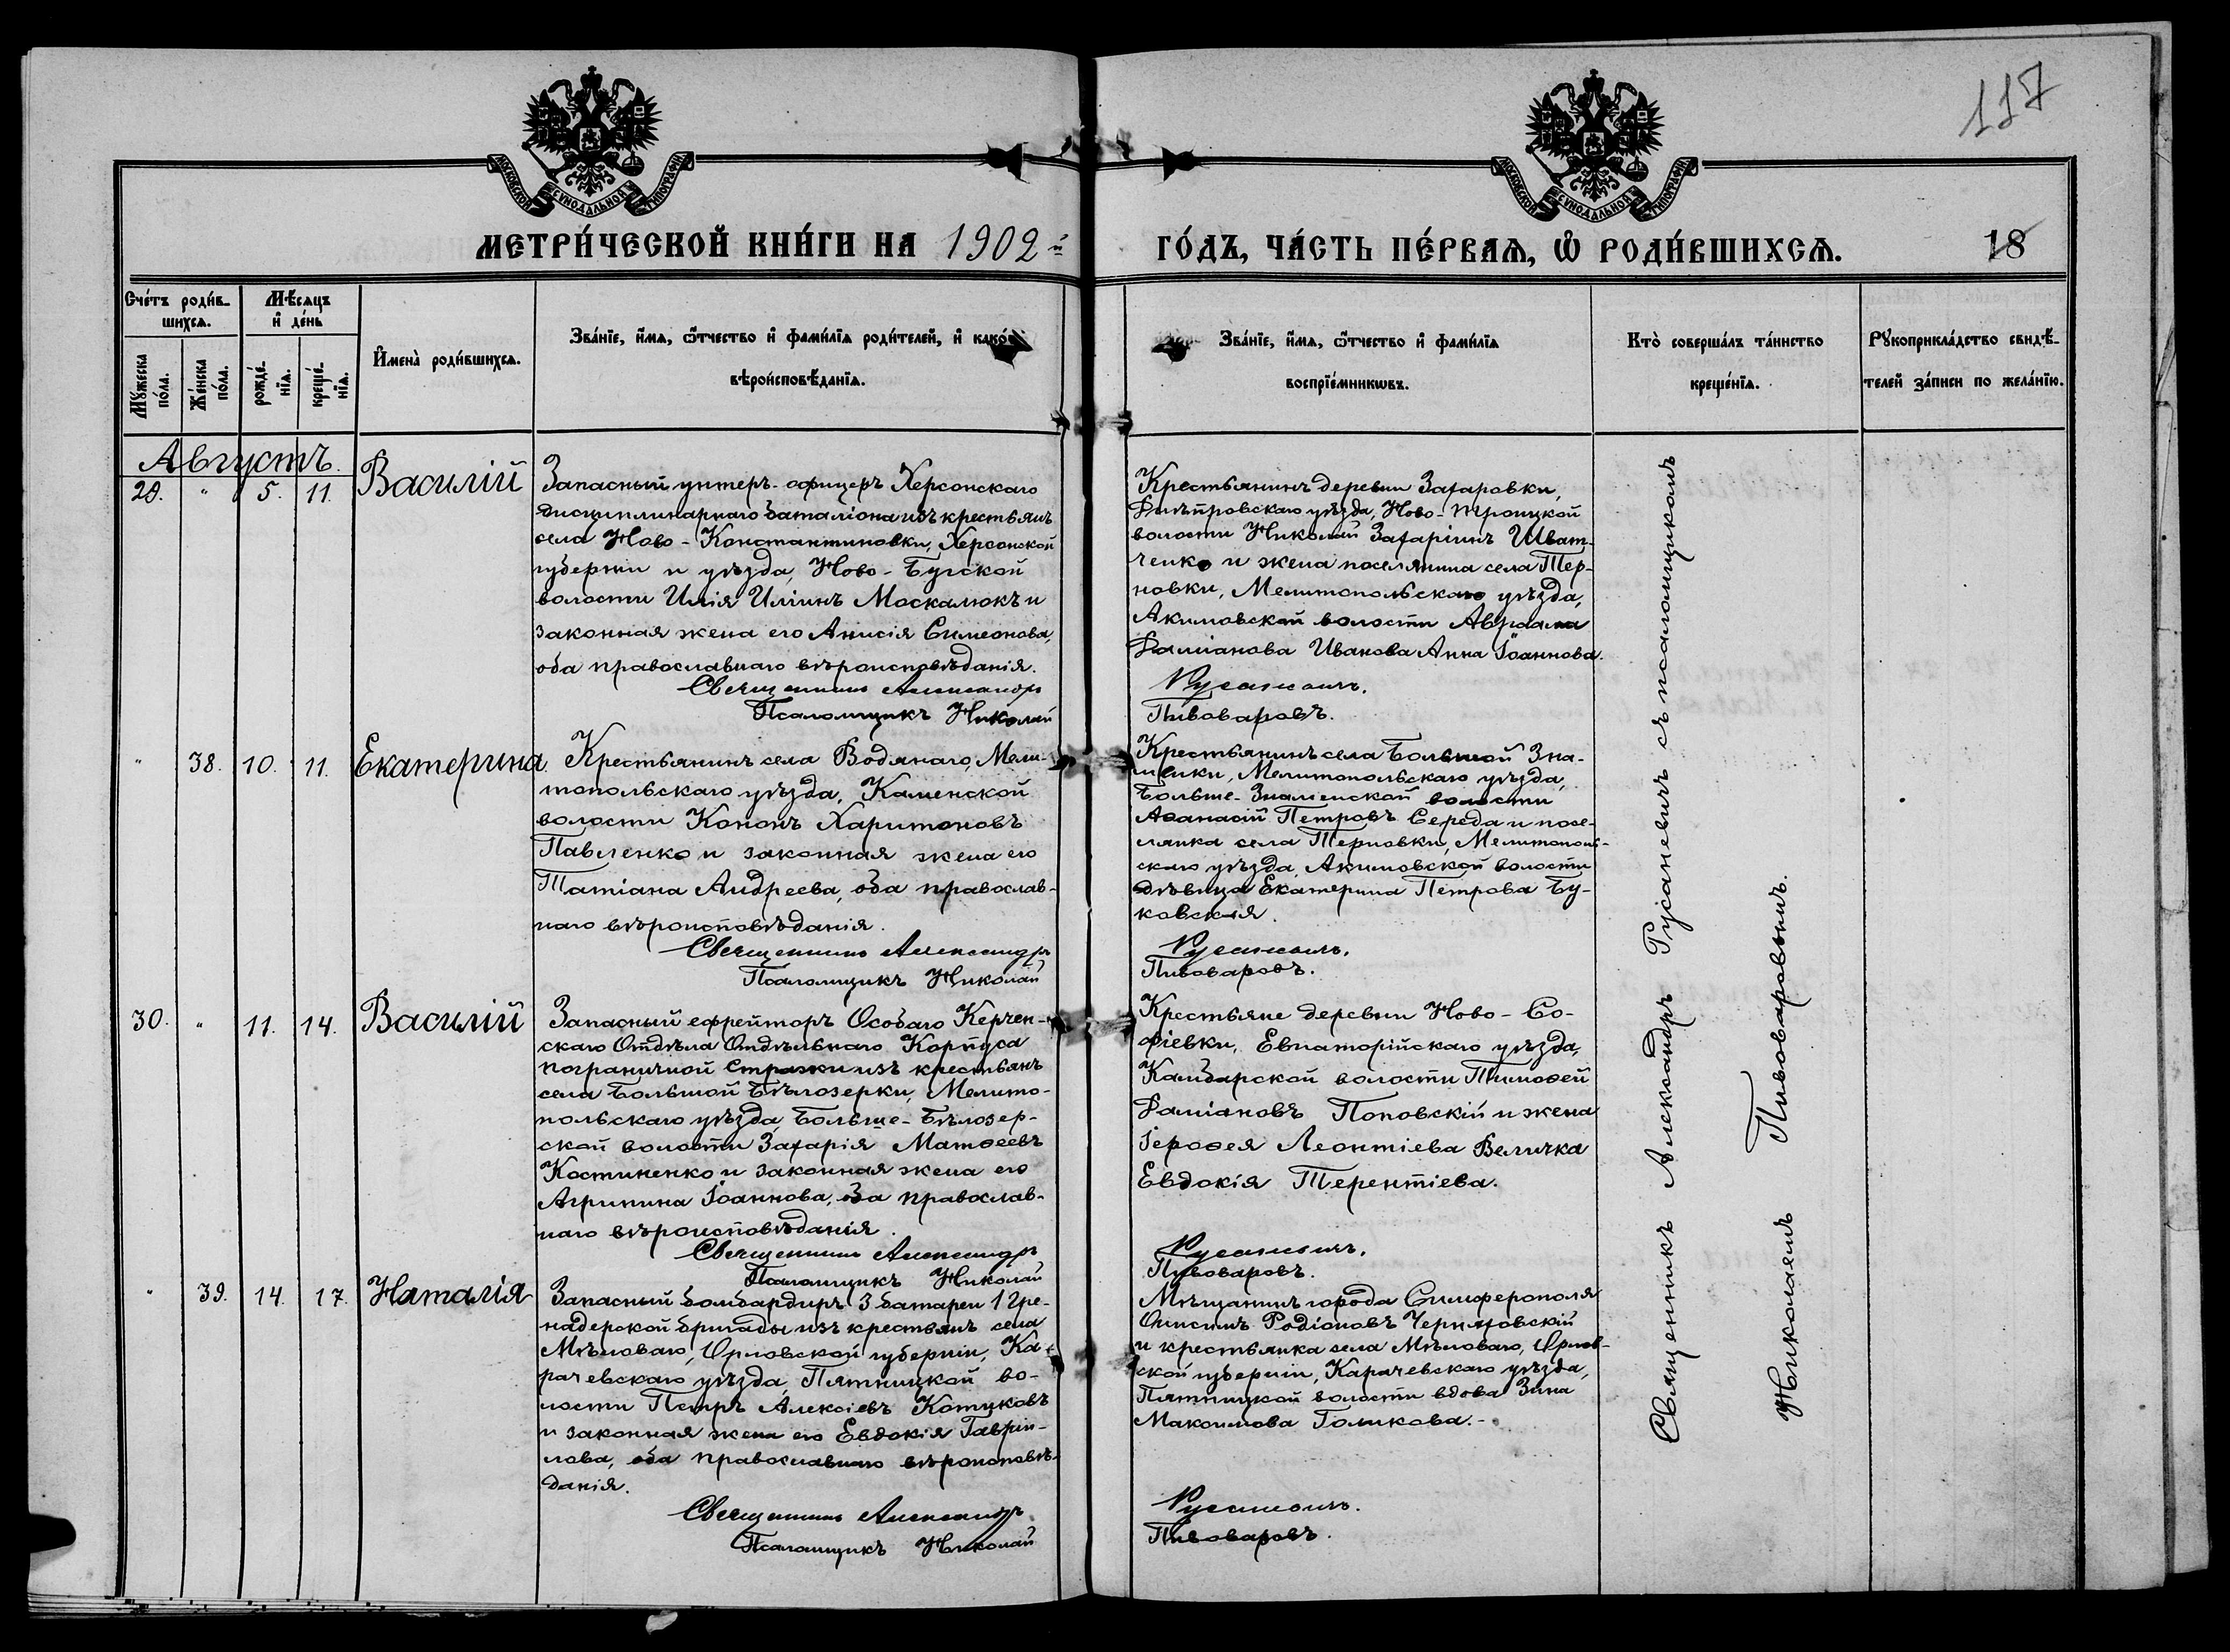 117
МОСКОВСКОЙ СѴНОДАЛЬНОЙ ТИПОГРАФІИ
МОСКОВСКОЙ СѴНОДАЛЬНОЙ ТИПОГРАФІИ
МЕТРИ́ЧЕСКОЙ КНИ́ГИ НА 1902-й
ГО́ДЪ, ЧА́СТЬ ПЕ́РВАѦ, Ѡ҆ РОДИ́ВШИХСѦ.
18
Сче́тъ роди́в-
шихсѧ.
Мѣ́сѧцъ
и҆ де́нь
Мꙋ́жеска
по́ла.
Же́нска
по́ла.
рожде́-
нїѧ.
креще́-
нїѧ.
И҆мена̀ роди́вшихсѧ.
Зва́нїе, и҆́мѧ, ѻ҆́тчество и҆ фами́лїѧ роди́телей, и҆ како́
вѣроисповѣ́данїѧ.
Зва́нїе, и҆́мѧ, ѻ҆́тчество и҆ фами́лїѧ
воспрїе́мникѡвъ.
Кто̀ соверша́лъ та́инство
креще́нїѧ.
Рꙋкоприкла́дство свидѣ́-
телей за́писи по жела́нїю.
Августъ.
29. " 5. 11. Василій
Запасный унтеръ-офицеръ Херсонскаго
дисциплинарнаго баталіона изъ крестьянъ
села Ново-Константиновки, Херсонской
губерніи и уѣзда, Ново-Бугской
волости Илія Иліинъ Москалюкъ и
законная жена его Анисія Симеонова,
оба православнаго вѣроисповѣданія.
Священникъ Александръ
Псаломщикъ Николай
Крестьянинъ деревни Захаровки,
Днѣпровскаго уѣзда, Ново-Троицкой
волости Николай Захаріинъ Шват-
ченко и жена поселянина села Тер-
новки, Мелитопольскаго уѣзда,
Акимовской волости Авраама
Даміанова Иванова Анна Іоаннова.
Русаневичъ.
Пивоваровъ.
" 38. 10. 11. Екатерина.
Крестьянинъ села Водянаго, Мели-
топольскаго уѣзда, Каменской
волости Кононъ Харитоновъ
Павленко и законная жена его
Татіана Андреева, оба православ-
наго вѣроисповѣданія.
Священникъ Александръ
Псаломщикъ Николай
Крестьянинъ села Большой Зна-
менки, Мелитопольскаго уѣзда,
Больше-Знаменской волости
Аѳанасій Петровъ Середа и посе-
лянка села Терновки, Мелитополь-
скаго уѣзда, Акимовской волости
дѣвица Екатерина Петрова Бу-
ковская.
Русаневичъ.
Пивоваровъ.
30. " 11. 14. Василій
Запасный ефрейторъ Особаго Керчен-
скаго Отдѣла Отдѣльнаго Корпуса
пограничной Стражи изъ крестьянъ
села Большой Бѣлозерки, Мелито-
польскаго уѣзда, Больше-Бѣлозер-
ской волости Захарія Матѳеевъ
Костиненко и законная жена его
Агрипина Іоаннова, оба православ-
наго вѣроисповѣданія.
Священникъ Александръ
Псаломщикъ Николай
Крестьяне деревни Ново-Со-
фіевки, Евпаторійскаго уѣзда,
Камбарской волости Тимоѳей
Даміановъ Поповскій и жена
Іероѳея Леонтіева Величка
Евдокія Терентіева.
Русаневичъ.
Пивоваровъ.
" 39. 14. 17. Наталія
Запасный бомбардиръ 3 батареи 1 Гре-
надерской бригады изъ крестьянъ села
Мѣловаго, Орловской губерніи, Ка-
рачевскаго уѣзда, Пятницкой во-
лости Петръ Алексіевъ Котуковъ
и законная жена его Евдокія Гаврі-
лова, оба православнаго вѣроисповѣ-
данія.
Священникъ Александръ
Псаломщикъ Николай
Мѣщанинъ города Симферополя
Онисимъ Родіоновъ Черняховскій
и крестьянка села Мѣловаго, Орлов-
ской губерніи, Карачевскаго уѣзда,
Пятницкой волости вдова Зина
Максимова Голикова.-
Русаневичъ.
Пивоваровъ.
Священникъ Александръ Русаневичъ съ псаломщикомъ
Николаемъ Пивоваровымъ.